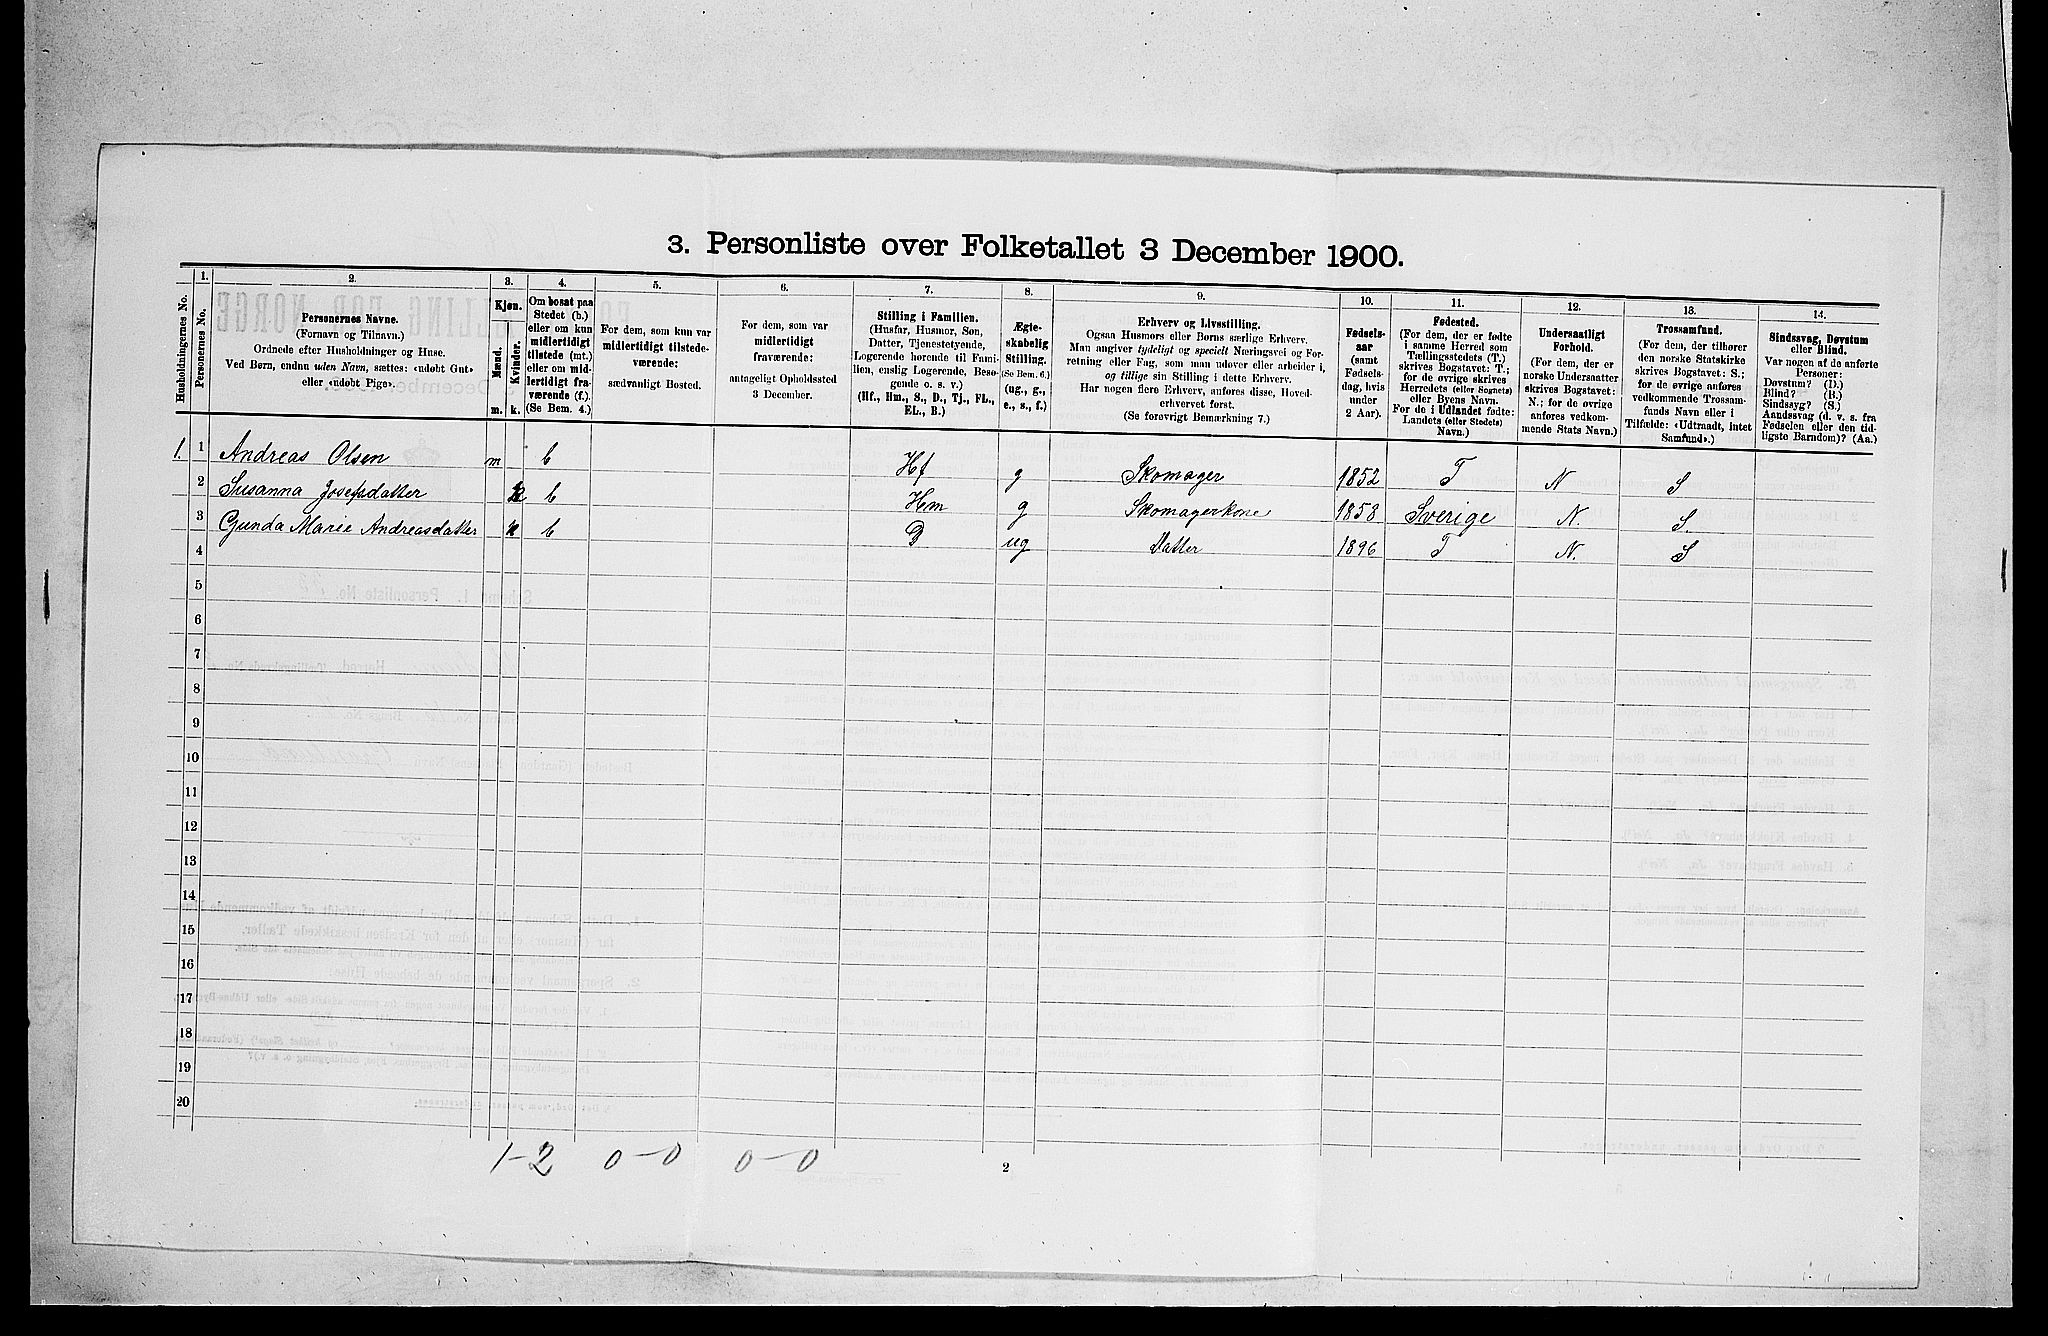 3. Personliste over Folketallet 3 December 1900.
Husholdningernes No.
1.
Personernes No.
2.
Personernes Navne.
(Fornavn og Tilnavn.)
Ordnede efter Husholdninger og Huse.
Ved Børn, endnu uden Navn, sættes: «udøbt Gut»
eller «udøbt Pige».
3.
Kjøn.
Mænd.
Kvinder.
m.
k.
4.
Om bosat paa
Stedet (b.)
eller om kun
midlertidigt
tilstede (mt.)
eller om mid-
lertidigt fra-
værende (f.).
(Se Bem. 4.)
5.
For dem, som kun var
midlertidigt tilstede-
værende:
sædvanligt Bosted.
6.
For dem, som var
midlertidigt
fraværende:
antageligt Opholdssted
3 December.
7.
Stilling i Familien.
(Husfar, Husmor, Søn,
Datter, Tjenestetyende,
Logerende hørende til Fami-
lien, enslig Logerende, Besø-
gende o. s. v.)
(Hf., Hm., S., D., Tj., FL.,
EL., B.)
8.
Ægte-
skabelig
Stilling.
(Se Bem. 6.)
(ug., g.,
e., s., f.)
9.
Erhverv og Livsstilling.
Ogsaa Husmors eller Børns særlige Erhverv.
Man angiver tydeligt og specielt Næringsvei og For-
retning eller Fag, som man udøver eller arbeider i,
og tillige sin Stilling i dette Erhverv.
Har nogen flere Erhverv, anføres disse, Hoved-
erhvervet først.
(Se forøvrigt Bemærkning 7.)
10.
Fødsels-
aar
(samt
Fødsels-
dag, hvis
under
2 Aar).
11.
Fødested.
(For dem, der er fødte
i samme Herred som
Tællingsstedets (T.)
skrives Bogstavet: T.;
for de øvrige skrives
Herredets (eller Sognets)
eller Byens Navn.
For de i Udlandet fødte:
Landets (eller Stedets)
Navn.)
12.
Undersaatligt
Forhold.
(For dem, der er
norske Undersaatter
skrives Bogstavet:
N.; for de øvrige
anføres vedkom-
mende Stats Navn.)
13.
Trossamfund.
(For dem, der tilhører
den norske Statskirke
skrives Bogstavet: S.;
for de øvrige anføres
vedkommende Trossam-
funds Navn eller i
Tilfælde: «Udtraadt, intet
Samfund».)
14.
Sindssvag, Døvstum
eller Blind.
Var nogen af de anførte
Personer:
Døvstum? (D.)
Blind? (B.)
Sindssyg? (S.)
Aandssvag (d. v. s. fra
Fødselen eller den tid-
ligste Barndom)? (Aa.)
1. 1 Andreas Olsen m b Hf g Skomager 1852 T N S
2 Susanna Josefsdatter k b Hm g Skomagerkone 1858 Sverige N. S.
3 Gunda Marie Andreasdatter k b D ug Datter 1896 T N. S
4
5
6
7
8
9
10
11
12
13
14
15
16
17
18
19
20
1-2 0-0 0-0
2